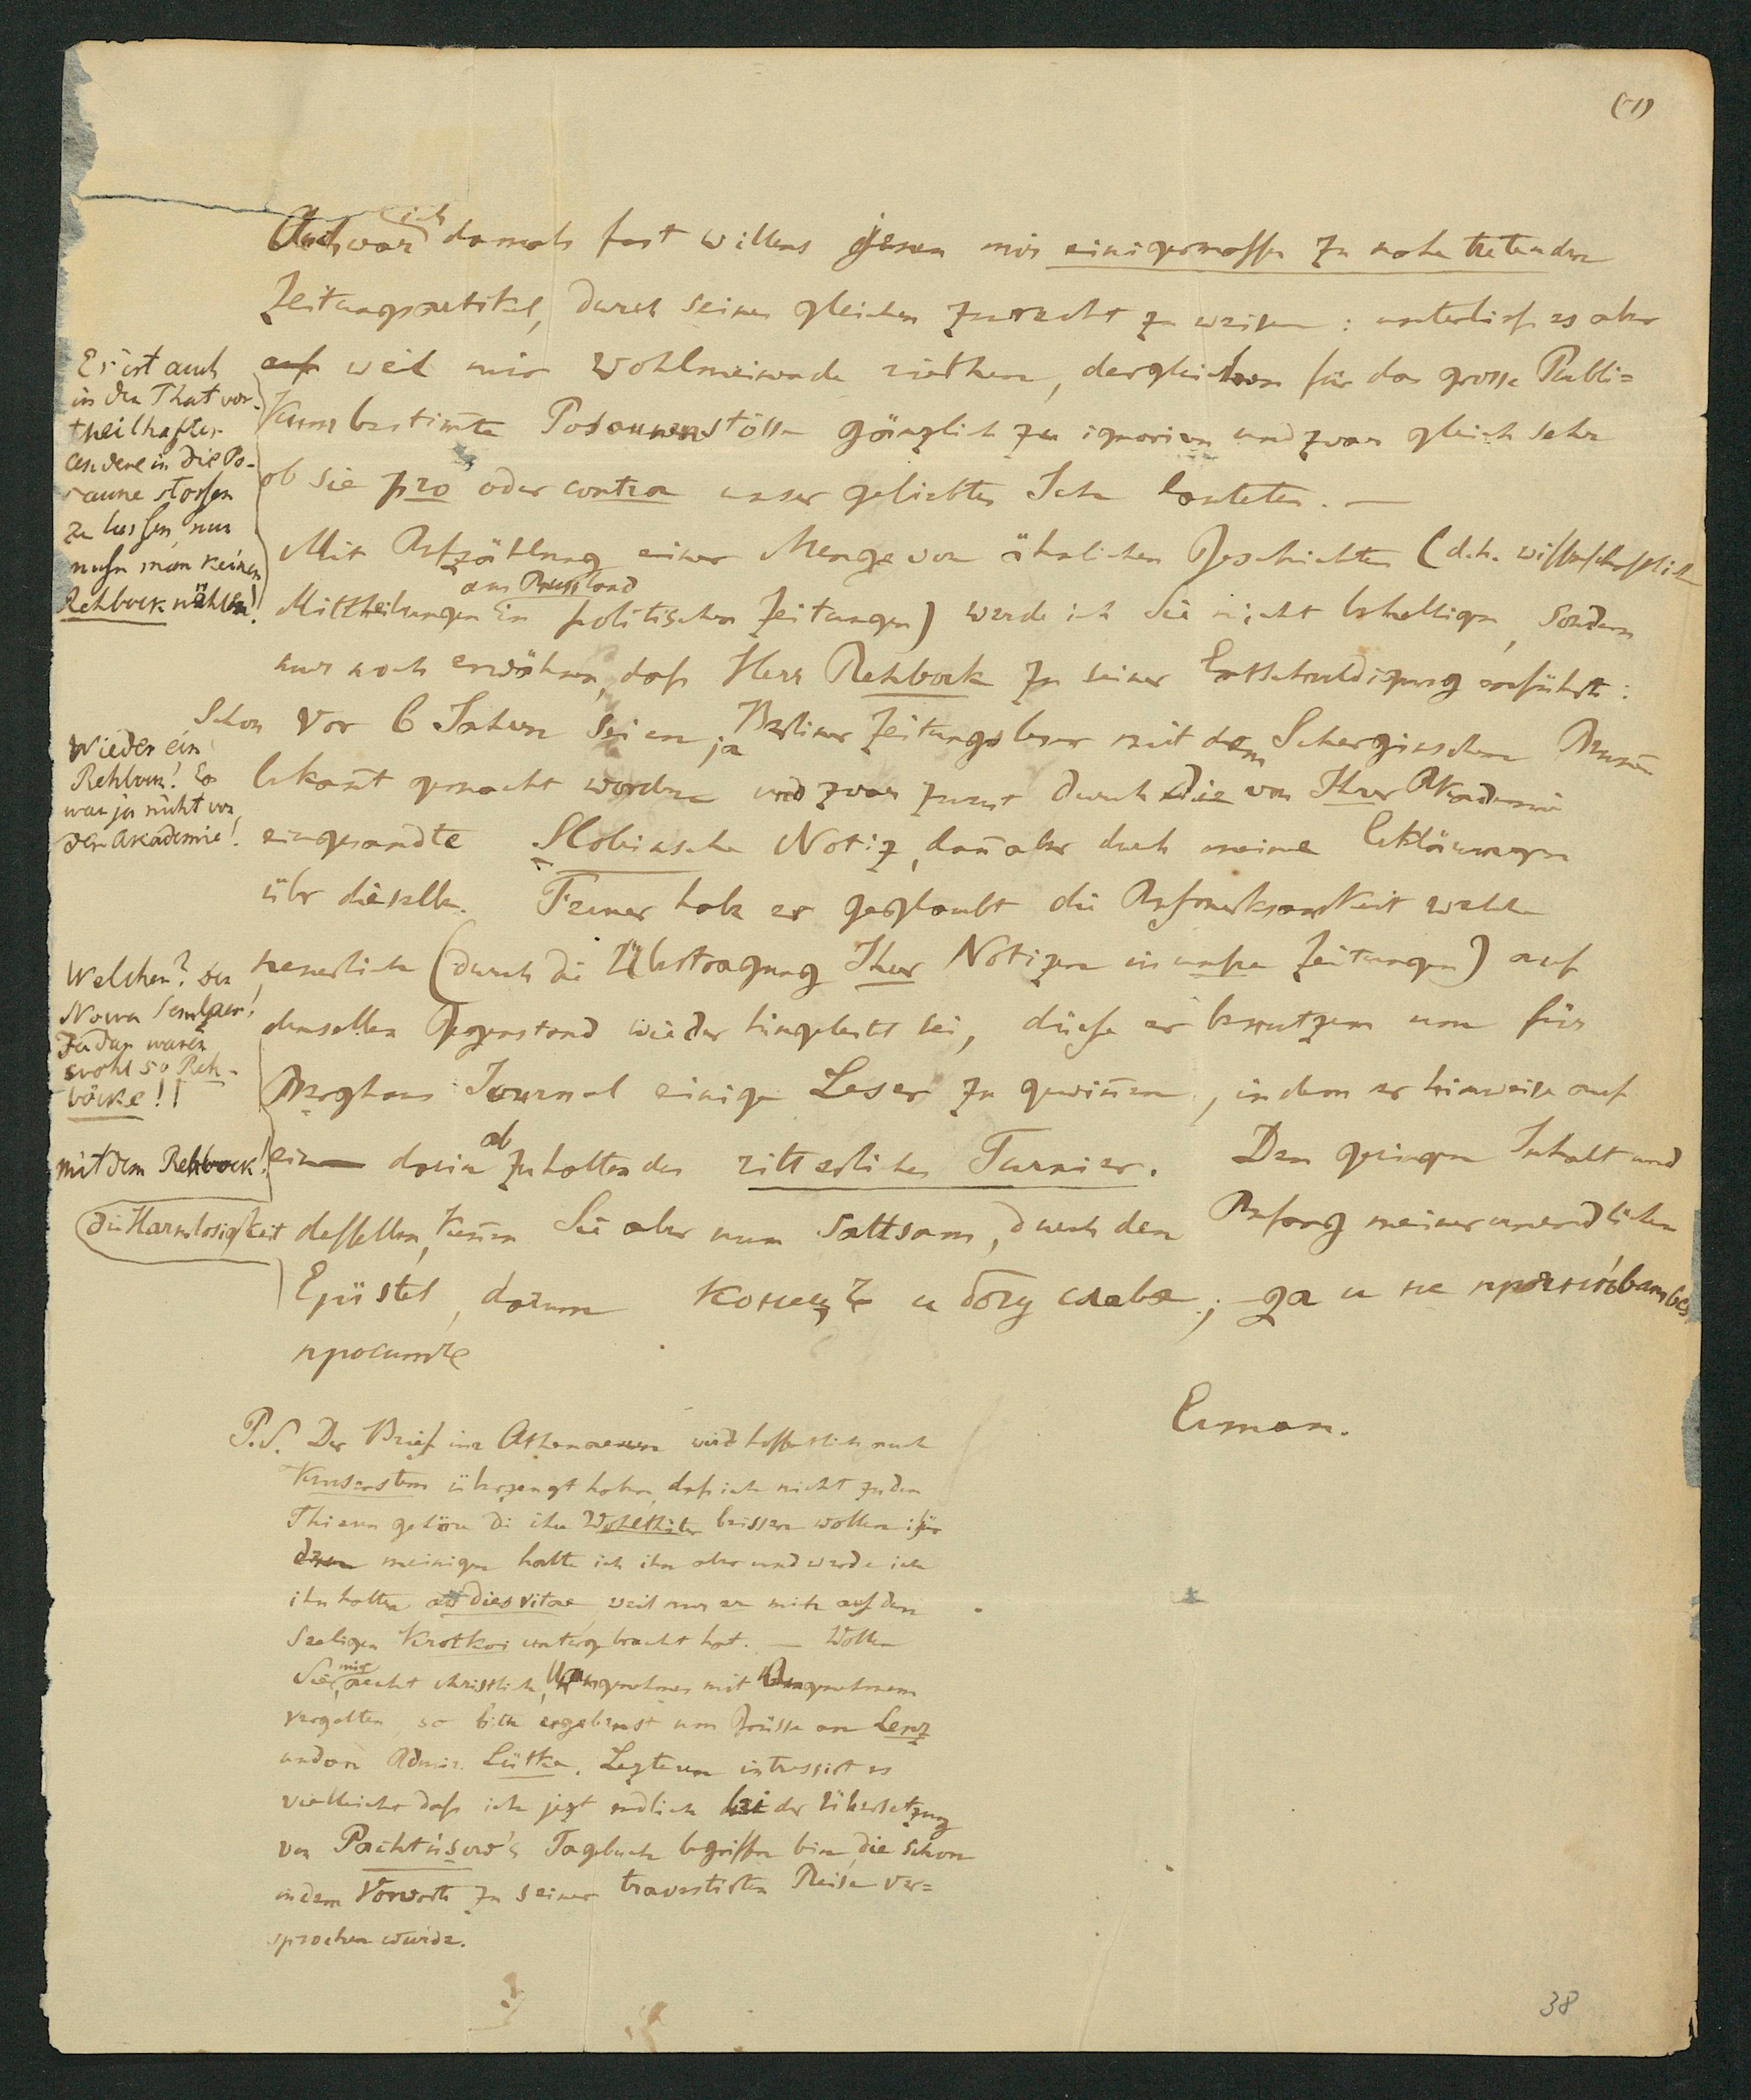 (1)
Auch war ich damals fast willens jenen mir einigermassen zu nahe tretenden
Zeitungsartikel, durch seines gleichen zurecht zu weisen: unterliess es aber
auf weil mir Wohlmeinende riethen, dergleichen für das grosse Publi=
kum bestimte Posaunenstösse gänzlich zu ignoriren und zwar gleich sehr
ob sie pro oder contra unser geliebtes Ich lauteten. —
Mit Aufzählung einer Menge von ähnlichen Geschichten (d.h. wissenschaftlich
Mittheilungen aus Russland in politischen Zeitungen) werde ich Sie nicht behelligen, sondern
nur noch erwähnen, dass Herr Rehbock zu seiner Entschuldigung anführt:
Schon vor 6 Jahren seien ja Berliner Zeitungsleser mit dem Scherginschen
bekant gemacht worden und zwar zuerst durch die von Ihrer Akademie
eingesandte Slobinsche Notiz, dan aber durch meine Erklärungen
über dieselbe. Ferner habe er geglaubt die Aufmerksamkeit welche
neuerlich (durch die Übertragung Ihrer Notizen in unsre Zeitungen) auf
denselben Gegenstand wieder hingelenkt sei, dürfe er benutzen um für
Berghaus Journal einige Leser zu gewinen, indem er hinweise auf
ein darin abzuhaltendes ritterliches Turnier. Den geringen Inhalt und
die Harmlosigkeit desselben, kenen Sie aber nun sattsam, durch den Anfang meiner unendlichen
Epistel, darum конецъ и богу слава; да и не прогнѣвайтесь
просимъ
Erman.
Es ist auch
in der That vor-
theilhafter
andere in die Po-
saune stossen
zu lassen, nur
muss man keinen
Rehbock wählen!
Wieder ein
Rehbock! Es
war ja nicht von
der Akademie!
Welchen? den
Nowa Semljaer!
Ja da waren
wohl so Reh-
böcke!!
mit dem Rehbock!
P.S. Der Brief im Athenaeum wird hoffentlich auch
Krusenstern überzeugt haben, dass ich nicht zu den
Thieren gehöre die ihre Wohlthäter beissen wollen: für
den meinigen halte ich ihn aber und werde ich
ihn halten ad dies vitae weil nur er mich auf dem
Seeligen Krotkoi untergebracht hat. — Wollen
Sie mir recht christlich, Unangenehmes mit Angenehmem
vergelten, so bitte ergebenst um Grüsse an Lenz
und an Admir. Lütke. Lezteren interessirt es
vielleicht dass ich jezt endlich bei der Übersetzung
von Pachtusow's Tagebuch begriffen bin, die schon
in dem Vorworte zu seiner travestirten Reise ver=
sprochen wurde.
38